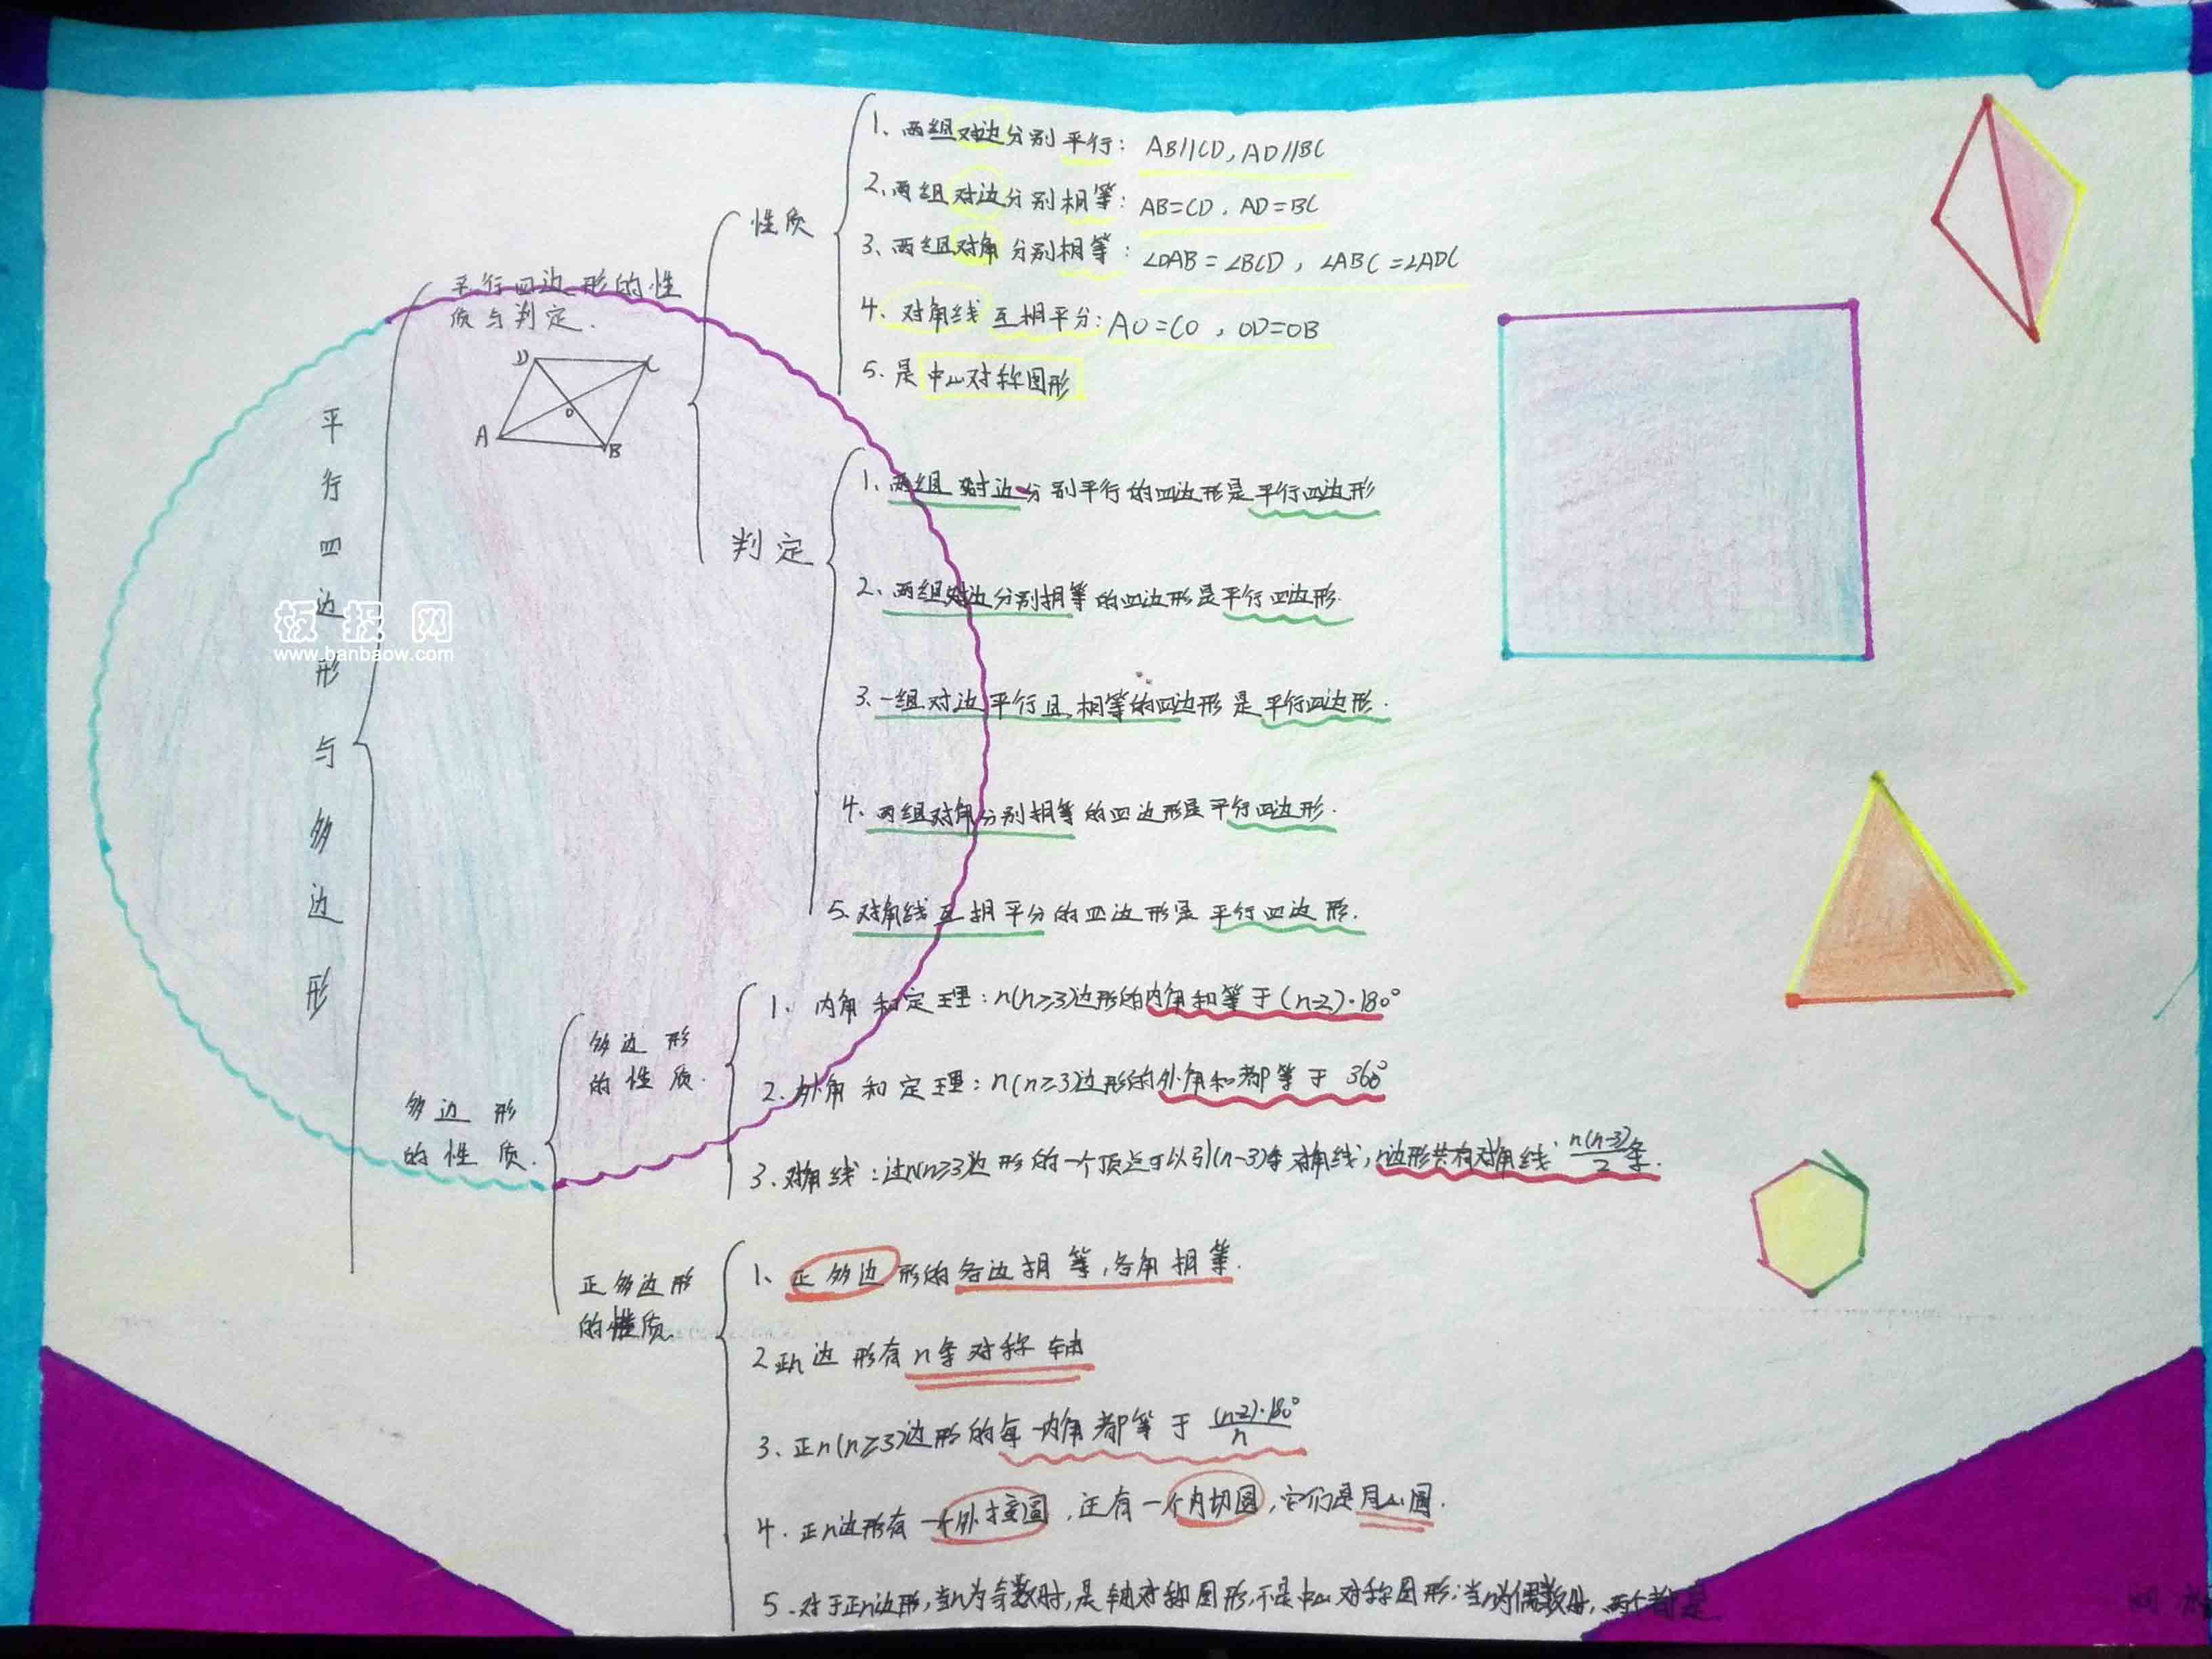 平行四边形与多边形
平行四边形的性
质与判定.
D C
O
A B
性质
1、两组对边分别平行: AB//CD, AD//BC
2、两组对边分别相等: AB=CD, AD=BC
3、两组对角分别相等: ∠DAB=∠BCD, ∠ABC=∠ADC
4、对角线互相平分: AO=CO, OD=OB
5. 是中心对称图形
判定
1、两组对边分别平行的四边形是平行四边形
2、两组对边分别相等的四边形是平行四边形.
3、一组对边平行且相等的四边形是平行四边形.
4、两组对角分别相等的四边形是平行四边形.
5、对角线互相平分的四边形是平行四边形.
板报网
www.banbaow.com
多边形
的性质.
多边形
的性质.
1、内角和定理: n(n≥3)边形的内角和等于(n-2)·180°
2. 外角和定理: n(n≥3)边形的外角和都等于 360°
3. 对角线: 过n(n≥3)边形的一个顶点可以引(n-3)条对角线, n边形共有对角线 n(n-3)/2 条.
正多边形
的性质.
1、正多边形的各边相等, 各角相等.
2 正n边形有n条对称轴
3. 正n(n≥3)边形的每一内角都等于 (n-2)·180°/n
4. 正n边形有一个外接圆, 还有一个内切圆, 它们是同心圆.
5. 对于正n边形, 当n为奇数时, 是轴对称图形, 不是中心对称图形; 当n为偶数时, 两个都是